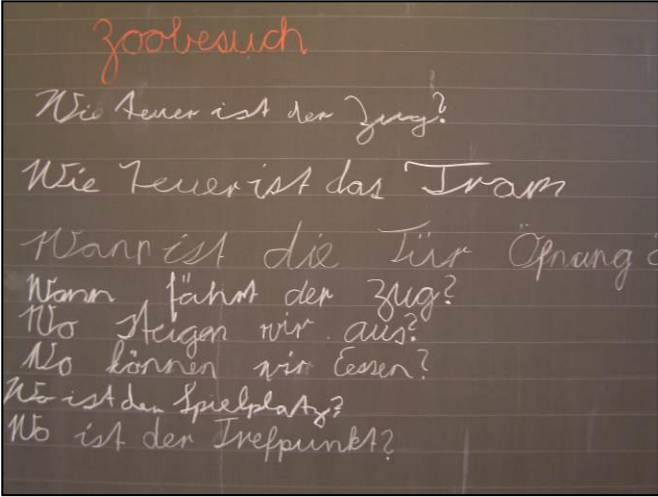 Zoobesuch
Wie teuer ist der Zug?
Wie teuer ist das Tram
Wann ist die Tür Öfnung
Wann fährt der Zug?
Wo steigen wir aus?
Wo können wir Essen?
Wo ist den Spielplatz?
Wo ist der Trefpunkt?